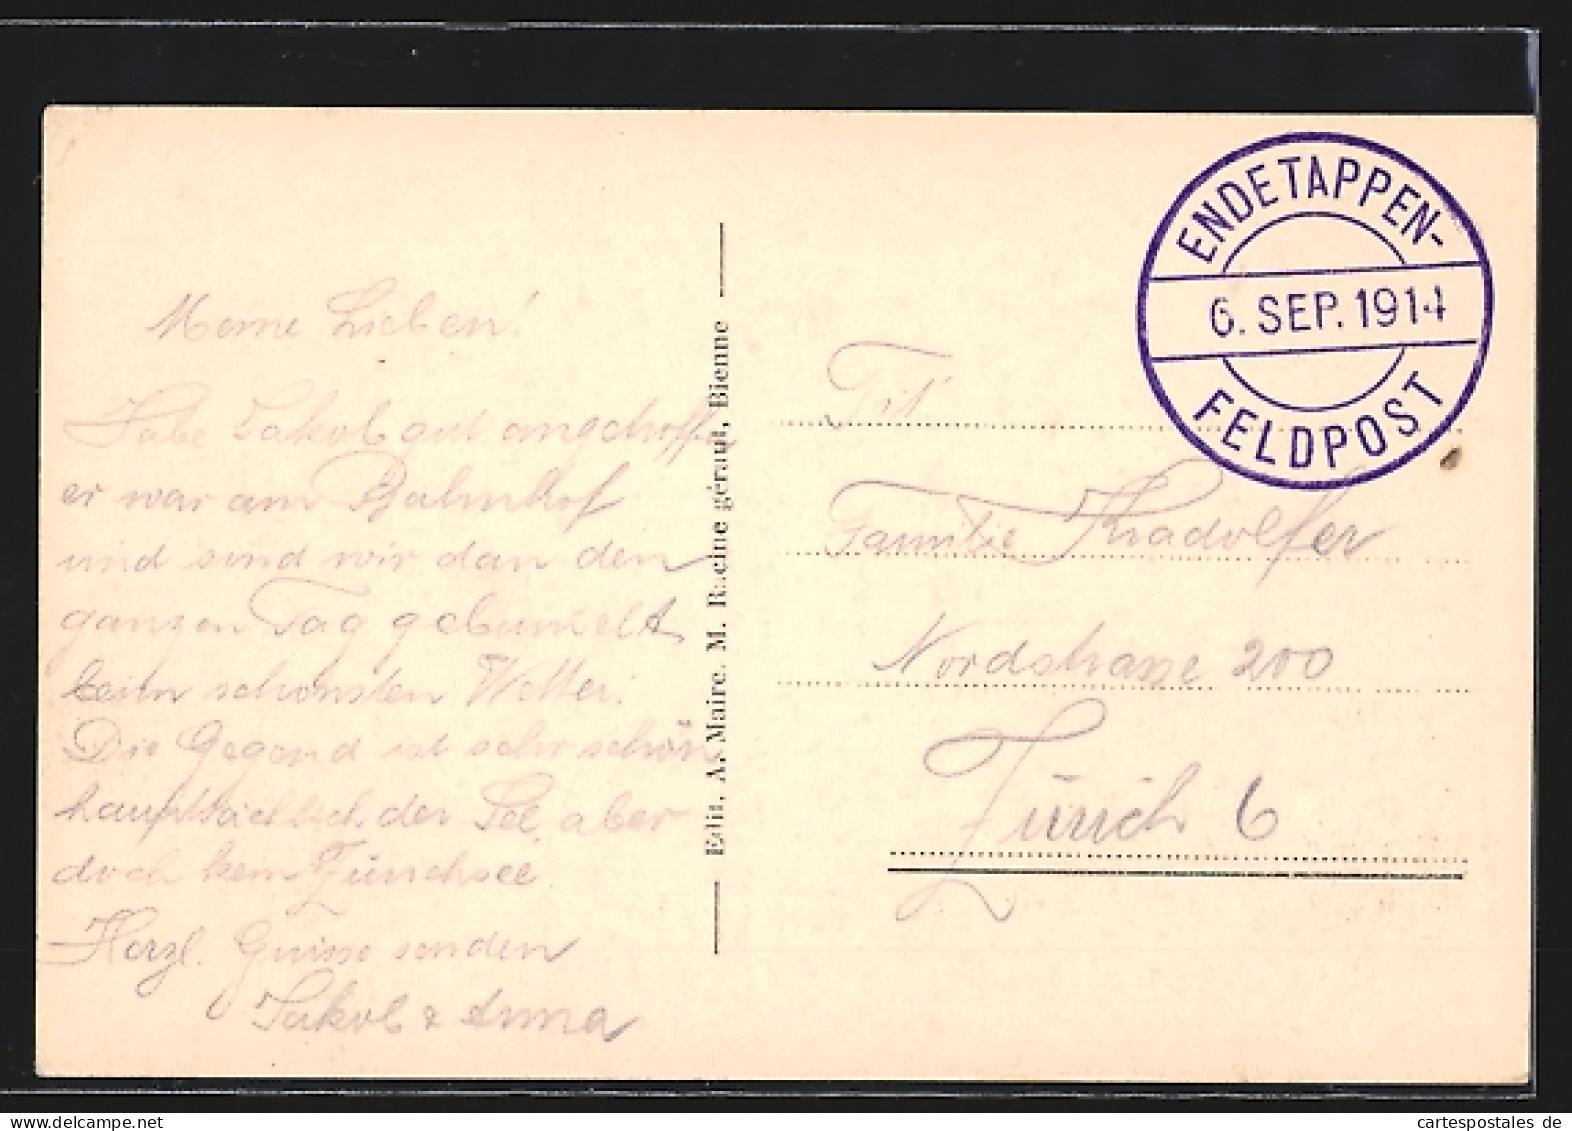 Meine Lieben!
Habe Jakob gut angetroffen
er war am Bahnhof
und sind wir dan den
ganzen Tag gebummelt
beim schönsten Wetter.
Die Gegend ist sehr schön
hauptsächlich der See, aber
doch kein Zürichsee.
Herzl. Grüsse senden
Jakob & Anna
Edit. A. Maire. M. Racine gérant, Bienne
ENDETAPPEN-
6. SEP. 1914
FELDPOST
Tit.
Familie Kradolfer
Nordstrasse 200
Zürich 6
cartespostales de